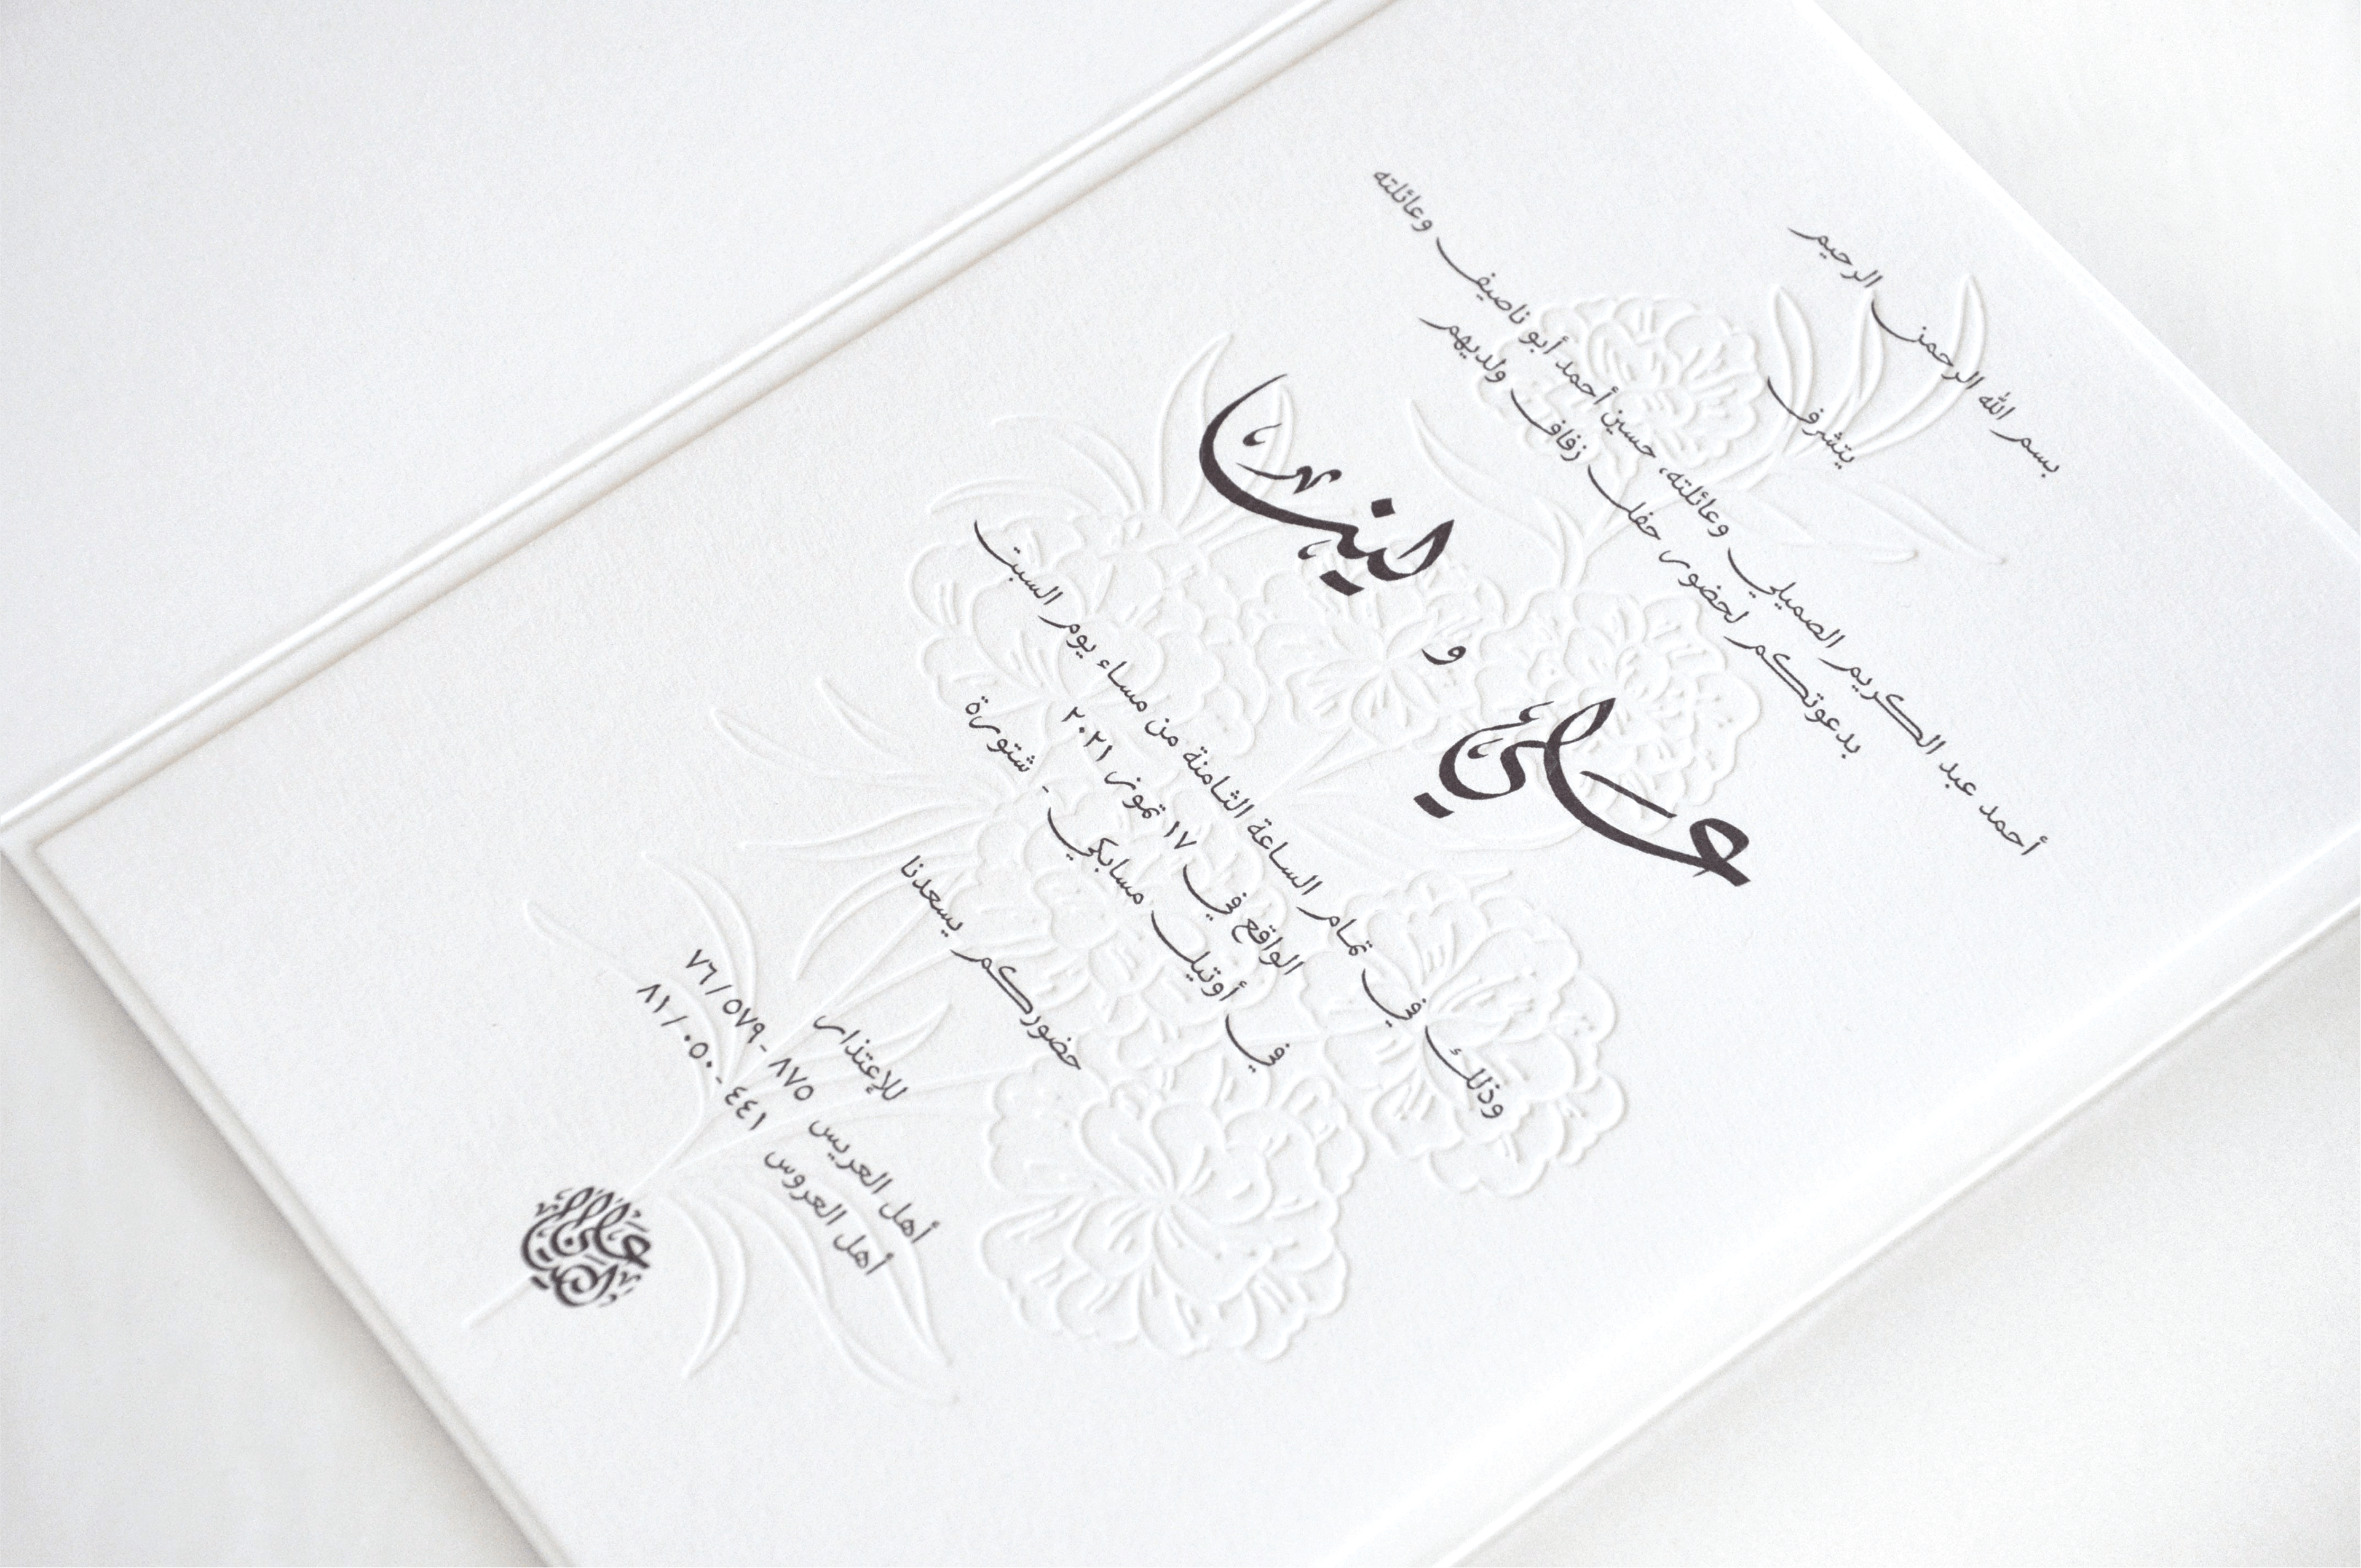 بسم الله الرحمن الرحيم
يتشرف
أحمد عبد الكريم الصميلي وعائلته، حسين أحمد أبو ناصيف وعائلته
بدعوتكم لحضور حفل زفاف ولديهم
علي و لين
وذلك في تمام الساعة الثامنة من مساء يوم السبت
الواقع في ١٧ تموز ٢٠٢١
في أوتيل مسابكي - شتورة
حضوركم يسعدنا
للإعتذار
أهل العريس ٨٧٥ - ٥٧٩ / ٧٦
أهل العروس ٤٤١ - ٠٥٠ / ٨١